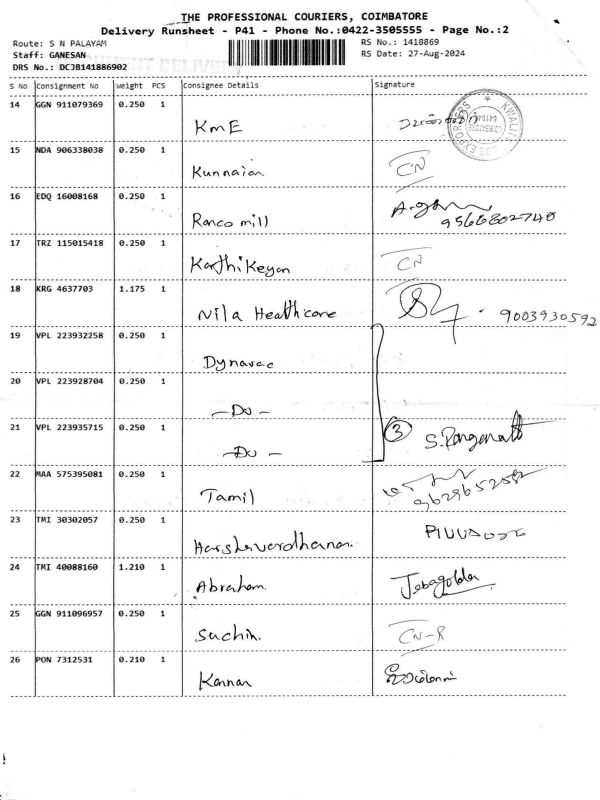 THE PROFESSIONAL COURIERS, COIMBATORE
Delivery Runsheet - P41 - Phone No.:0422-3505555 - Page No.:2
Route: S N PALAYAM
RS No.: 1418869
Staff: GANESAN
RS Date: 27-Aug-2024
DRS No.: DCJB141886902
S No Consignment No Weight PCS Consignee Details Signature
14 GGN 911079369 0.250 1
KmE
15 NDA 906338038 0.250 1
Kunnaian CN
16 EDQ 16008168 0.250 1
Ranco mill
9566802748
17 TRZ 115015418 0.250 1
Karthikeyan CN
18 KRG 4637703 1.175 1
Nila Healthcare 9003930592
19 VPL 223932258 0.250 1
Dynavac
20 VPL 223928704 0.250 1
-Do-
21 VPL 223935715 0.250 1
-Do- 3 S.
22 MAA 575395081 0.250 1
Tamil
23 TMI 30302057 0.250 1
Harshavardhanan
24 TMI 40088160 1.210 1
Abraham
25 GGN 911096957 0.250 1
Sachin. CN-R
26 PON 7312531 0.210 1
Kannan